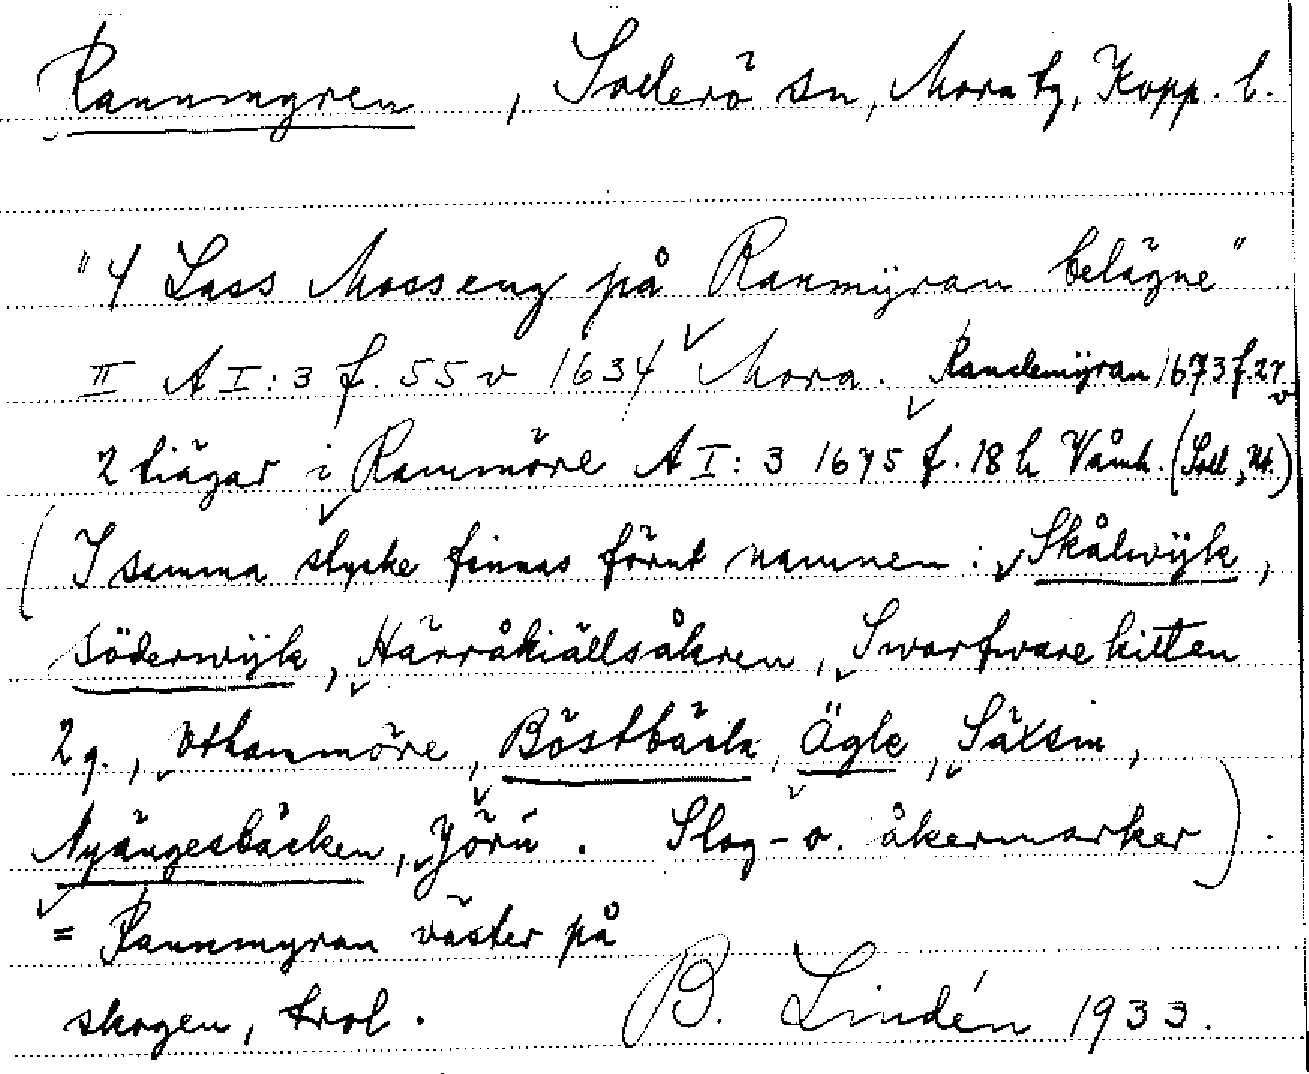 Rannmyren, Sollerö sn, Mora tg, Kopp. l.
"4 Lass Mosseng på Ranmÿran belägne"
II A I:3 f. 55 v 1634 Mora. Randemÿran 1673 f. 27 v
2 tiägar i Rammöre A I:3 1675 f. 18 h Våmh. (Soll, Ut.)
(I samma stycke finnas förut namnen: Skålwÿk,
Söderwÿk, Härråkiällsåkren, Swartwarekitten
2 g., Uthanmöre, Böstbäck, Ägle, Säxsin,
Nyängesbäcken, Yörü. Slog- o. åkermarker).
= Rannmyran väster på
skogen, trol. B. Lindén 1933.